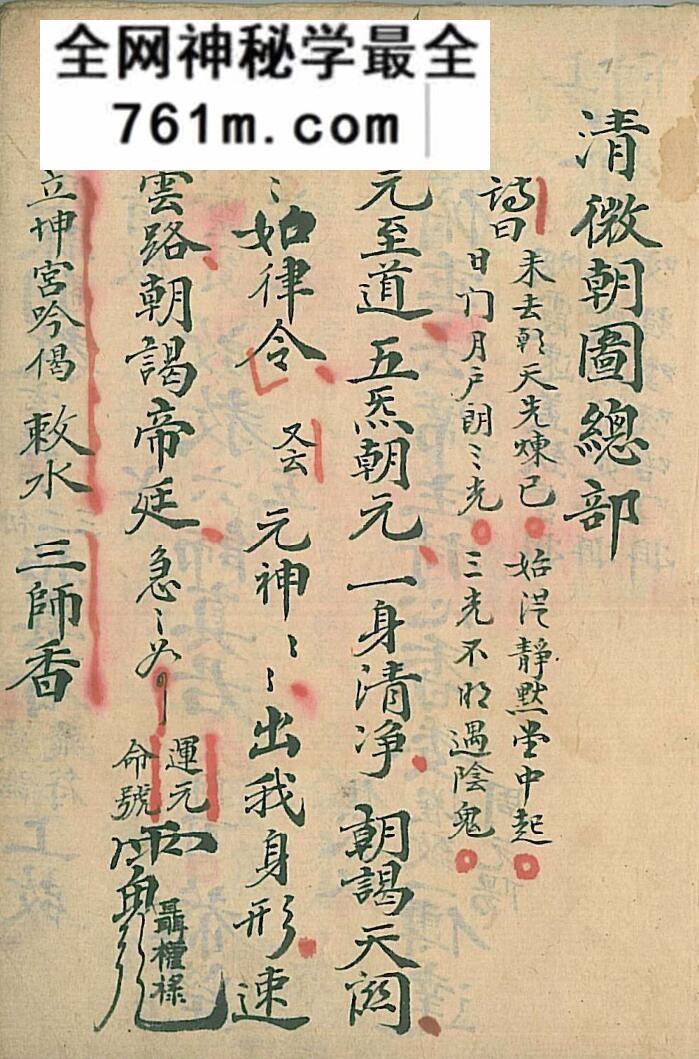 全网神秘学最全
761m.com
清微朝圖總部
詩曰
未去朝天先煉已 始從靜默堂中起
日门月户朗〻光 三光不明遇陰鬼
元至道 五炁朝元 一身清净 朝謁天闕
〻如律令 又云 元神〻〻出我身形速
雲路朝謁帝廷 急〻如
運元
命號
聶權祿
立坤宮吟偈 敕水 三師香